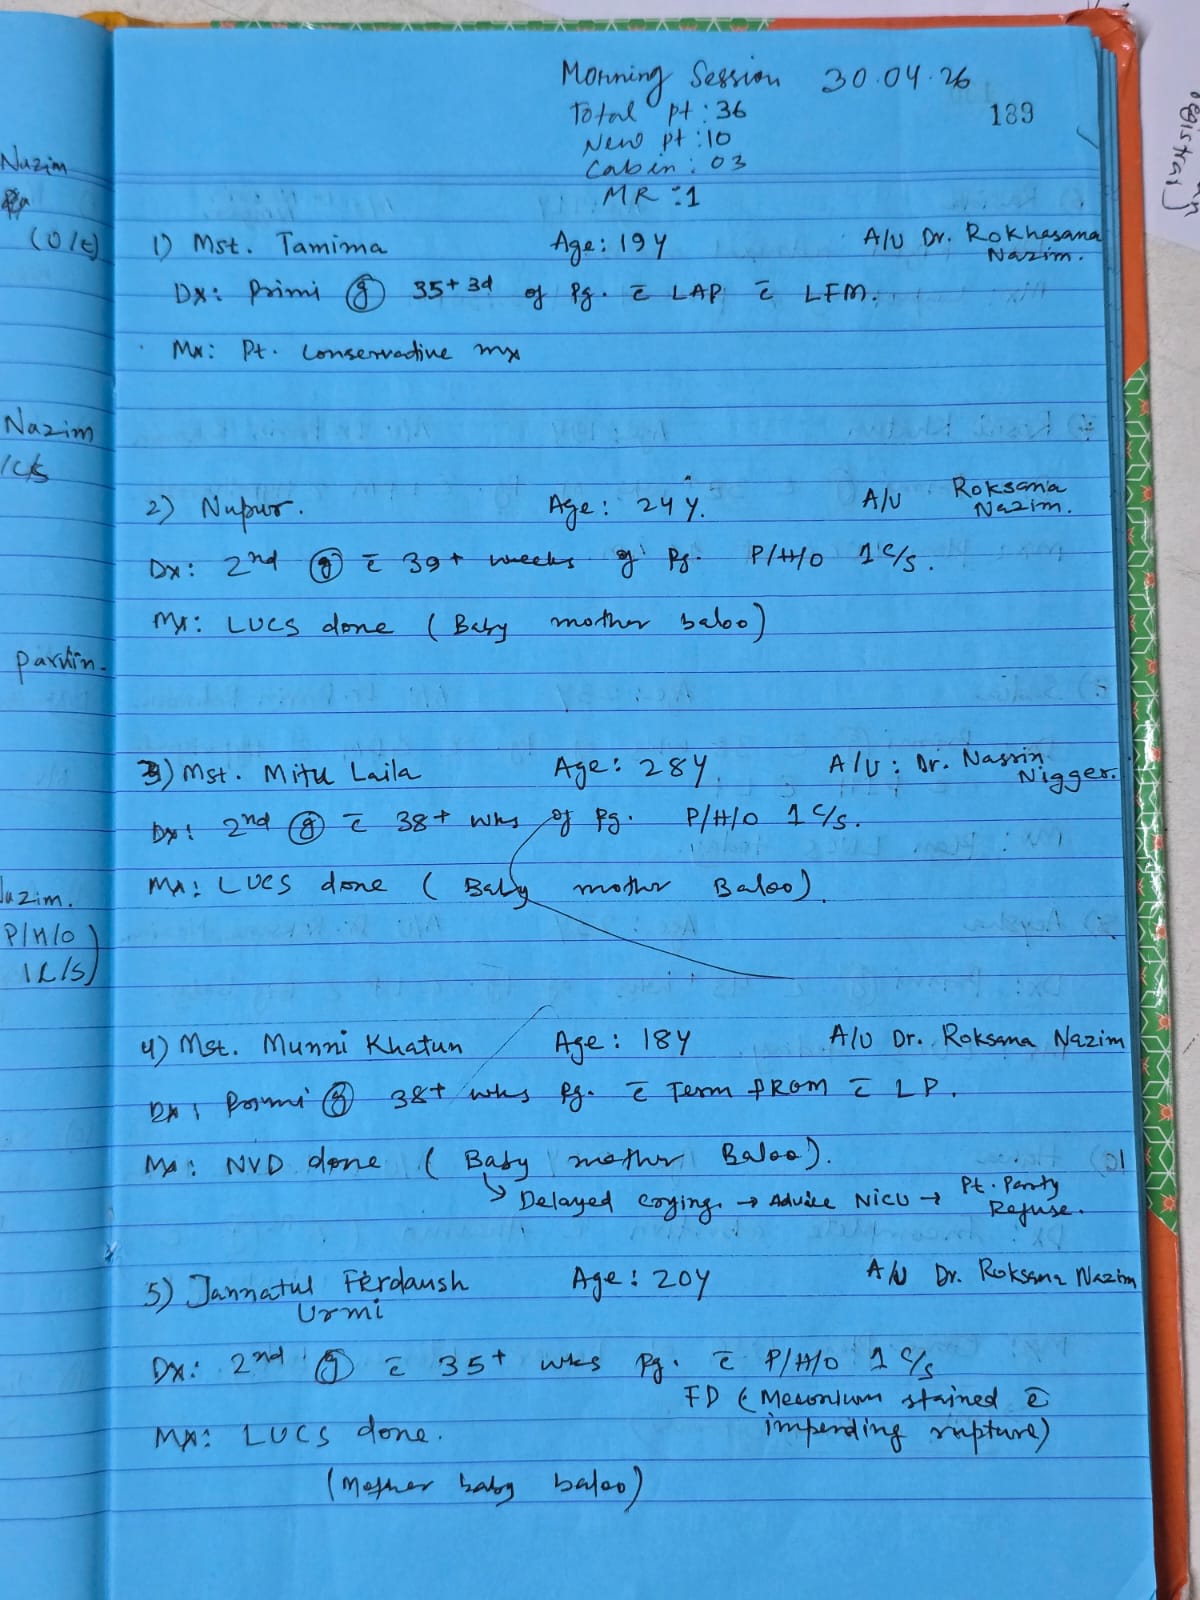 Morning Session 30.04.26
Total pt : 36
189
New pt : 10
Cabin : 03
MR : 1
1) Mst. Tamima Age: 19Y A/U Dr. Rokhasana
Nazim.
Dx: Primi (g) 35+ 3d of Pg. c̄ LAP c̄ LFM.
Mx: Pt. Conservative mx
2) Nupur. Age: 24Y. A/U Roksana
Nazim.
Dx: 2nd (g) c̄ 39+ weeks of Pg. P/H/O 1 C/S.
Mx: LUCS done (Baby mother baloo)
3) Mst. Mitu Laila Age: 28Y. A/U : Dr. Nasrin
Nigger.
Dx: 2nd (g) c̄ 38+ wks of Pg. P/H/O 1 C/S.
Mx: LUCS done (Baby mother Baloo).
4) Mst. Munni Khatun Age: 18Y A/U Dr. Roksana Nazim
Dx: Primi (g) 38+ wks Pg. c̄ Term PROM c̄ LP.
Mx: NVD done (Baby mother Baloo).
↳ Delayed crying. → Advice NICU → Pt. Party
Refuse.
5) Jannatul Ferdaush Age: 20Y A/U Dr. Roksana Nazim
Urmi
Dx: 2nd (g) c̄ 35+ wks Pg. c̄ P/H/O 1 C/S
FD (Meconium stained c̄
impending rupture)
Mx: LUCS done.
(Mother baby baloo)
Nazim
(O/E)
Nazim
1C/S
Parvin.
Nazim.
P/H/O
1C/S)